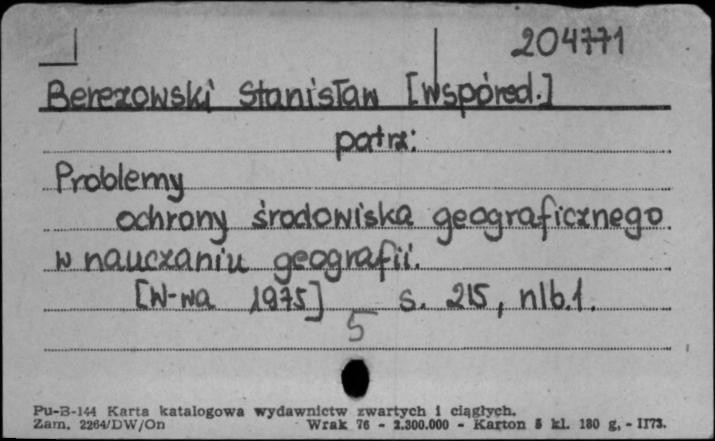 204771
Berezowski Stanisław [współred.]
patrz:
Problemy
ochrony środowiska geograficznego
w nauczaniu geografii.
[W-wa 1975] s. 215, nlb.1.
5
Pu-B-144 Karta katalogowa wydawnictw zwartych i ciągłych.
Zam. 2264/DW/On Wrak 76 - 2.300.000 - Karton 5 kl. 180 g, - II73.